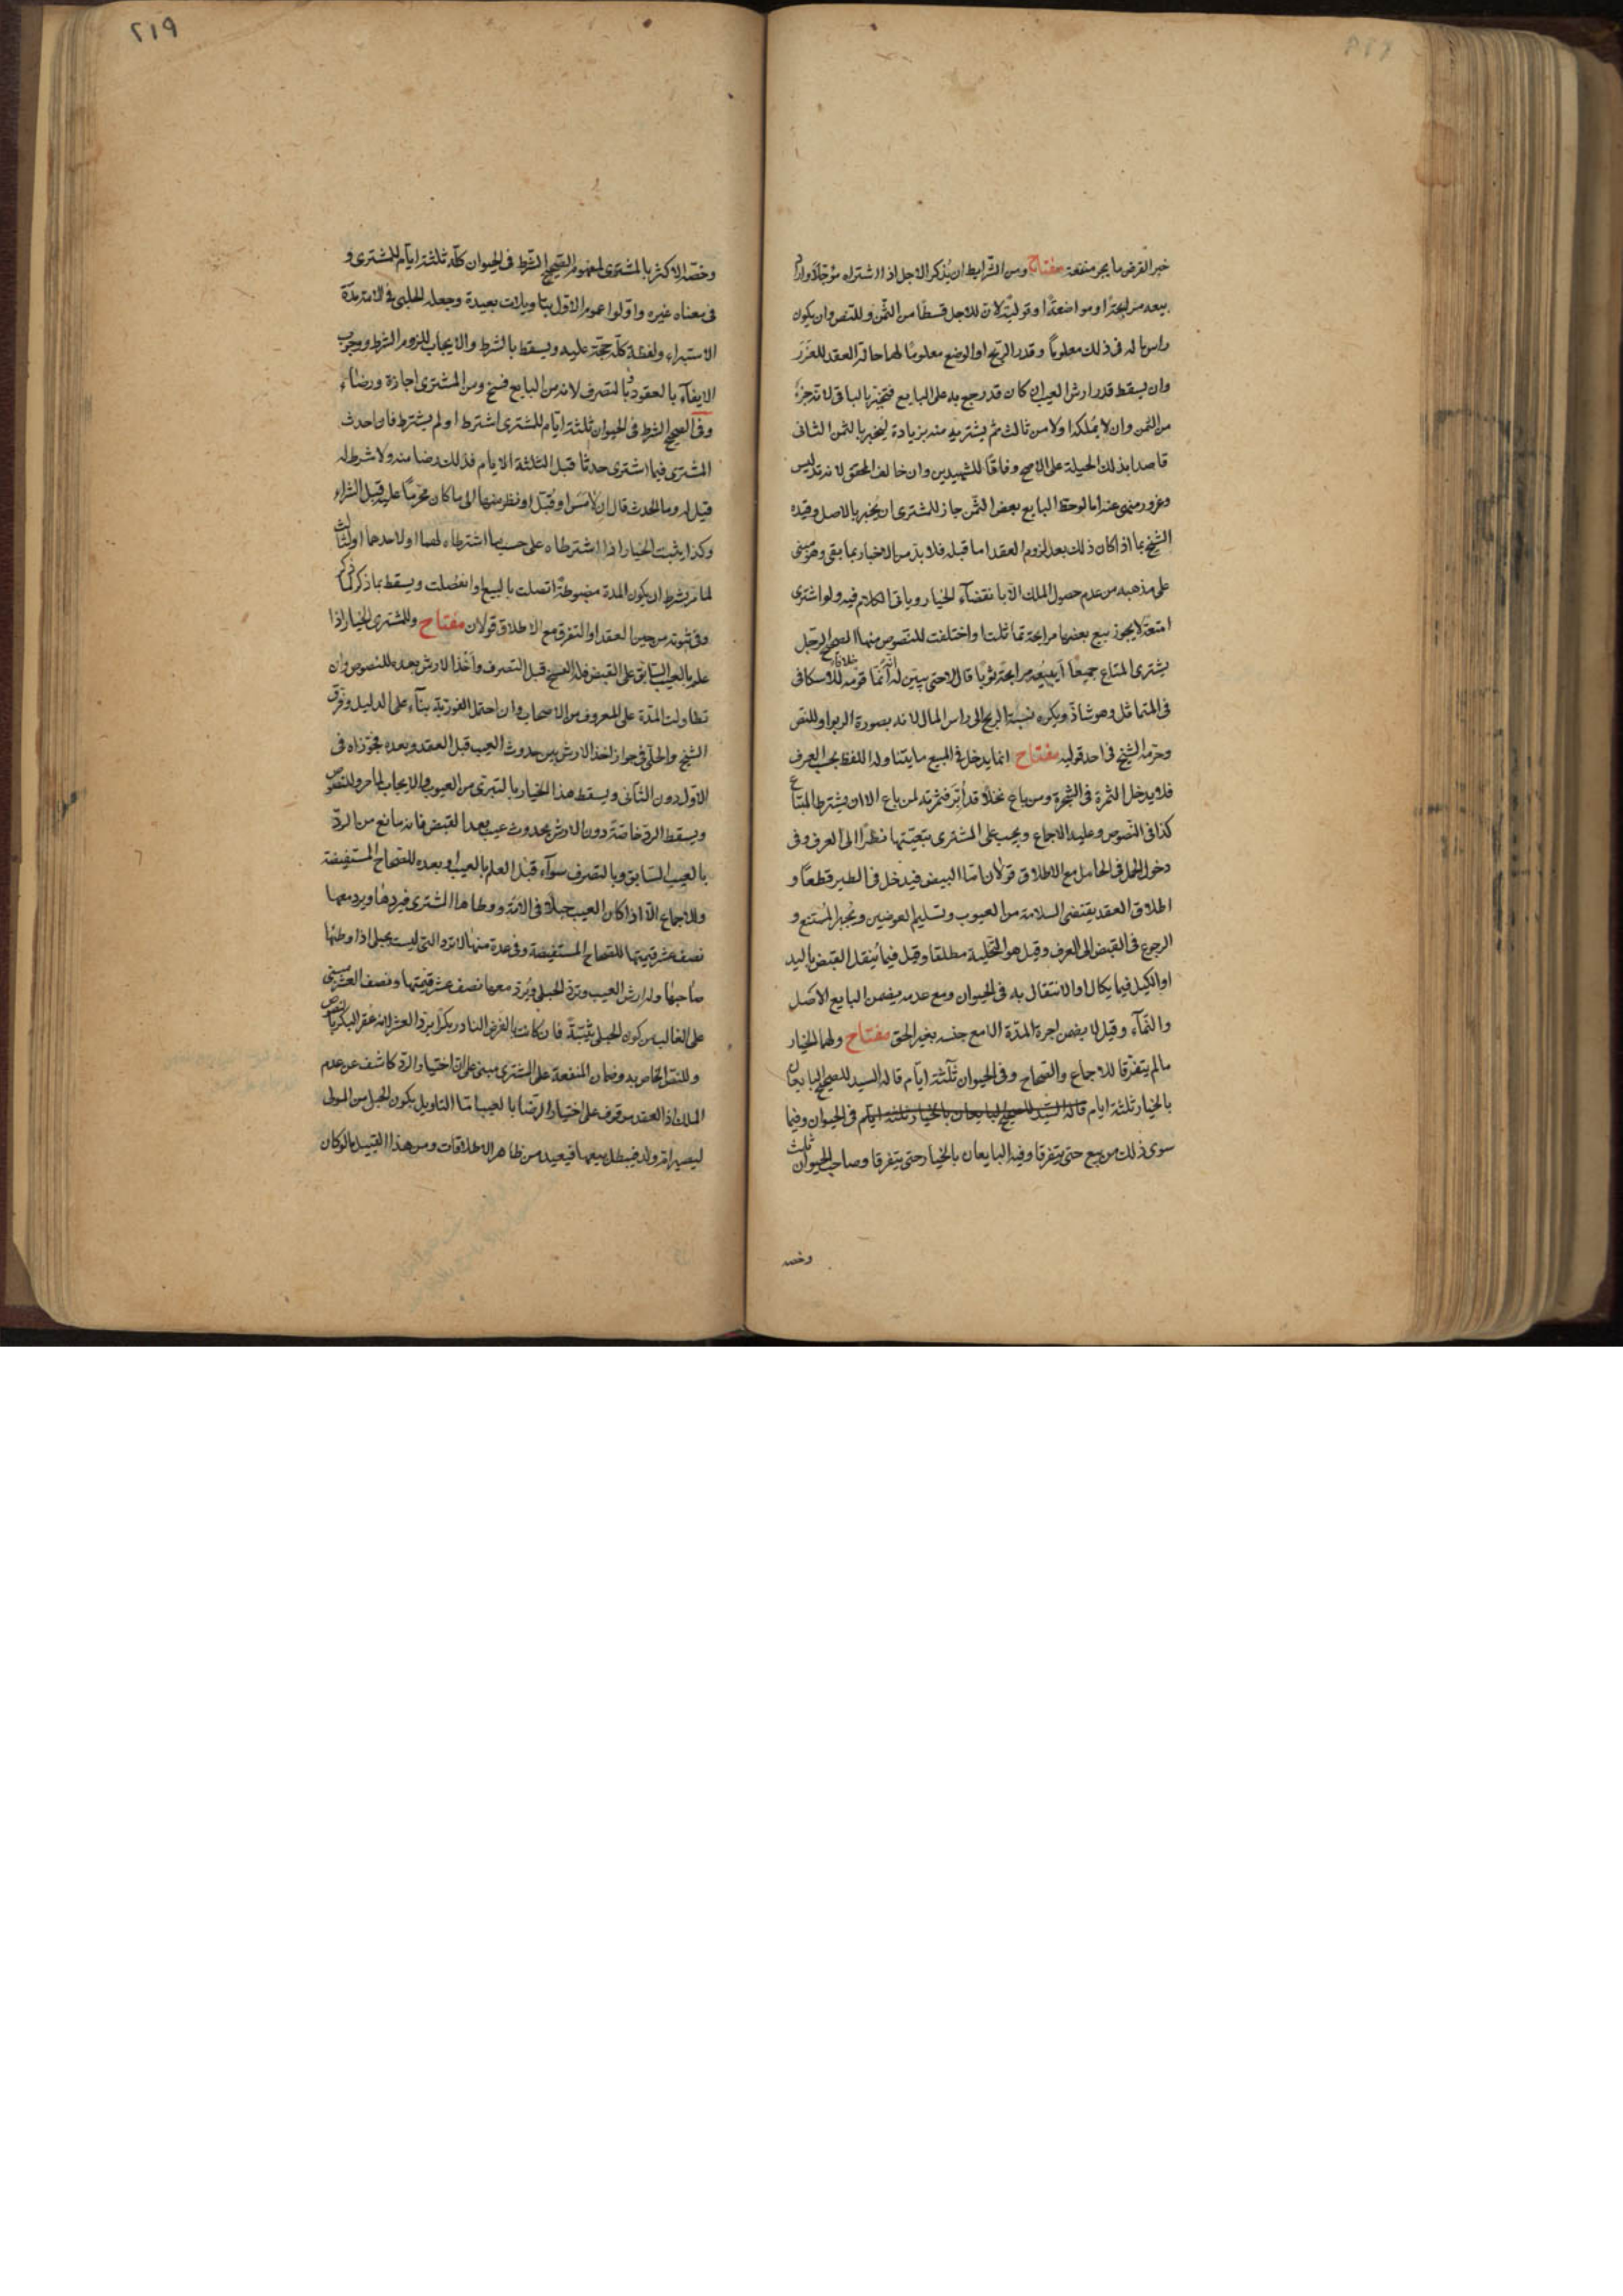 خير القرض ما يجر منفعة مفتاح ومن الشرايط ان يذكر الاجل اذا اشتراه مؤجلا واراد
بيعه مرابحة او مواضعة او تولية لان للاجل قسطا من الثمن وللنص وان يكون
راس ماله فى ذلك معلوما وقدر الربح او الوضع معلوما لهما حالة العقد للغرر
وان يسقط قدر ارش العيب ان كان قد رجع به على البايع فيخبر بالباقى لانه جزء
من الثمن وان لا يملكه اولا من ثالث ثم يشتريه منه بزيادة ليخبر بالثمن الثانى
قاصدا بذلك الحيلة على الاصح وفاقا للشهيدين وان خالف المحقق لانه تدليس
وغرور منهى عنه اما لو حط البايع بعض الثمن جاز للمشترى ان يخبر بالاصل وقيده
الشيخ بما اذا كان ذلك بعد لزوم العقد اما قبله فلا بد من الاخبار بما بقى وهو مبنى
على مذهبه من عدم حصول الملك الا بانقضاء الخيار وياتى الكلام فيه ولو اشترى
امتعة لا يجوز بيع بعضها مرابحة تماثلت او اختلفت للنصوص منها الصحيح الرجل
يشترى المتاع جميعا ايبيعه مرابحة ثوبا ثوبا قال لا حتى يبين له انه انما قومه خلافا للاسكافى
فى المتماثل وهو شاذ ويكره نسبة الربح الى راس المال لانه بصورة الربوا وللنص
وحرمه الشيخ فى احد قوليه مفتاح انما يدخل فى المبيع ما يتناوله اللفظ بحسب العرف
فلا يدخل الثمرة فى الشجرة ومن باع نخلا قد أبر فثمرته لمن باع الا ان يشترط المبتاع
كذا فى النصوص وعليه الاجماع ويجب على المشترى تبقيتها نظرا الى العرف وفى
دخول الحمل فى الحامل مع الاطلاق قولان اما البيض فيدخل فى الطير قطعا و
اطلاق العقد يقتضى السلامة من العيوب وتسليم العوضين ويجبر الممتنع و
الرجوع فى القبض الى العرف وقيل هو التخلية مطلقا وقيل فيما ينقل القبض باليد
او الكيل فيما يكال او الانتقال به فى الحيوان ومع عدمه يضمن البايع الاصل
والنماء وقيل لا يضمن اجرة المدة الا مع حبسه بغير الحق مفتاح ولهما الخيار
ما لم يتفرقا للاجماع والصحاح وفى الحيوان ثلثة ايام قاله السيد للصحيح البايعان
بالخيار ثلثة ايام قاله السيد للصحيح البايعان بالخيار ثلثة ايام فى الحيوان وفيما
سوى ذلك من بيع حتى يتفرقا وفيه البايعان بالخيار حتى يتفرقا وصاحب الحيوان ثلث
وخصه
٢١٩
وخصه الاكثر بالمشترى لمفهوم الصحيح الشرط فى الحيوان كله ثلثة ايام للمشترى و
فى معناه غيره واولوا عموم الاول بتاويلات بعيدة وجعله الحلبى فى الامة مدة
الاستبراء ولفظة كله حجة عليه ويسقط بالشرط والايجاب للزوم الشرط ووجوب
الايفاء بالعقود وبالتصرف لانه من البايع فسخ ومن المشترى اجازة ورضاء
وفى الصحيح الشرط فى الحيوان ثلثة ايام للمشترى اشترط او لم يشترط فان احدث
المشترى فيما اشترى حدثا قبل الثلثة الايام فذلك رضا منه ولا شرط له
قيل له وما الحدث قال ان لامس او قبل او نظر منها الى ما كان محرما عليه قبل الشراء
وكذا يثبت الخيار اذا اشترطاه على حسب ما اشترطاه لهما او لاحدهما او لثالث
لما مر بشرط ان يكون المدة مضبوطة اتصلت بالبيع او انفصلت ويسقط بما ذكر لما ذكر
وفى ثبوته من حين العقد او التفرق مع الاطلاق قولان مفتاح وللمشترى الخيار اذا
علم بالعيب السابق على القبض فله الفسخ قبل التصرف واخذ الارش بعده للنصوص وان
تطاولت المدة على المعروف من الاصحاب وان احتمل الفورية بناء على الدليل وفرق
الشيخ والحلى فى جواز اخذ الارش بين حدوث العيب قبل العقد وبعده فجوزاه فى
الاول دون الثانى ويسقط هذا الخيار بالتبرى من العيوب والايجاب لما مر وللنصوص
ويسقط الرد خاصة دون الارش بحدوث عيب بعد القبض فانه مانع من الرد
بالعيب السابق وبالتصرف سواء قبل العلم بالعيب او بعده للصحاح المستفيضة
والاجماع الا اذا كان العيب حبلا فى الامة ووطاها المشترى فيردها ويرد معها
نصف عشر قيمتها للصحاح المستفيضة وفى عدة منها لا ترد التى ليست بحبلى اذا وطئها
صاحبها وله ارش العيب وترد الحبلى ويرد معها نصف عشر قيمتها ونصف العشر مبنى
على الغالب من كون الحبلى ثيبة فان كانت بالفرض النادر بكرا يرد العشر لانه عقر البكر بالنص
وللنص الخاص به وضمان المنفعة على المشترى مبنى على ان اختيار الرد كاشف عن عدم
الملك اذ العقد موقوف على اختيار الرضا بالعيب اما التاويل بكون الحبل من المولى
ليصير ام ولد فيبطل بيعها فبعيد من ظاهر الاطلاقات ومن هذا القبيل ما لو كان